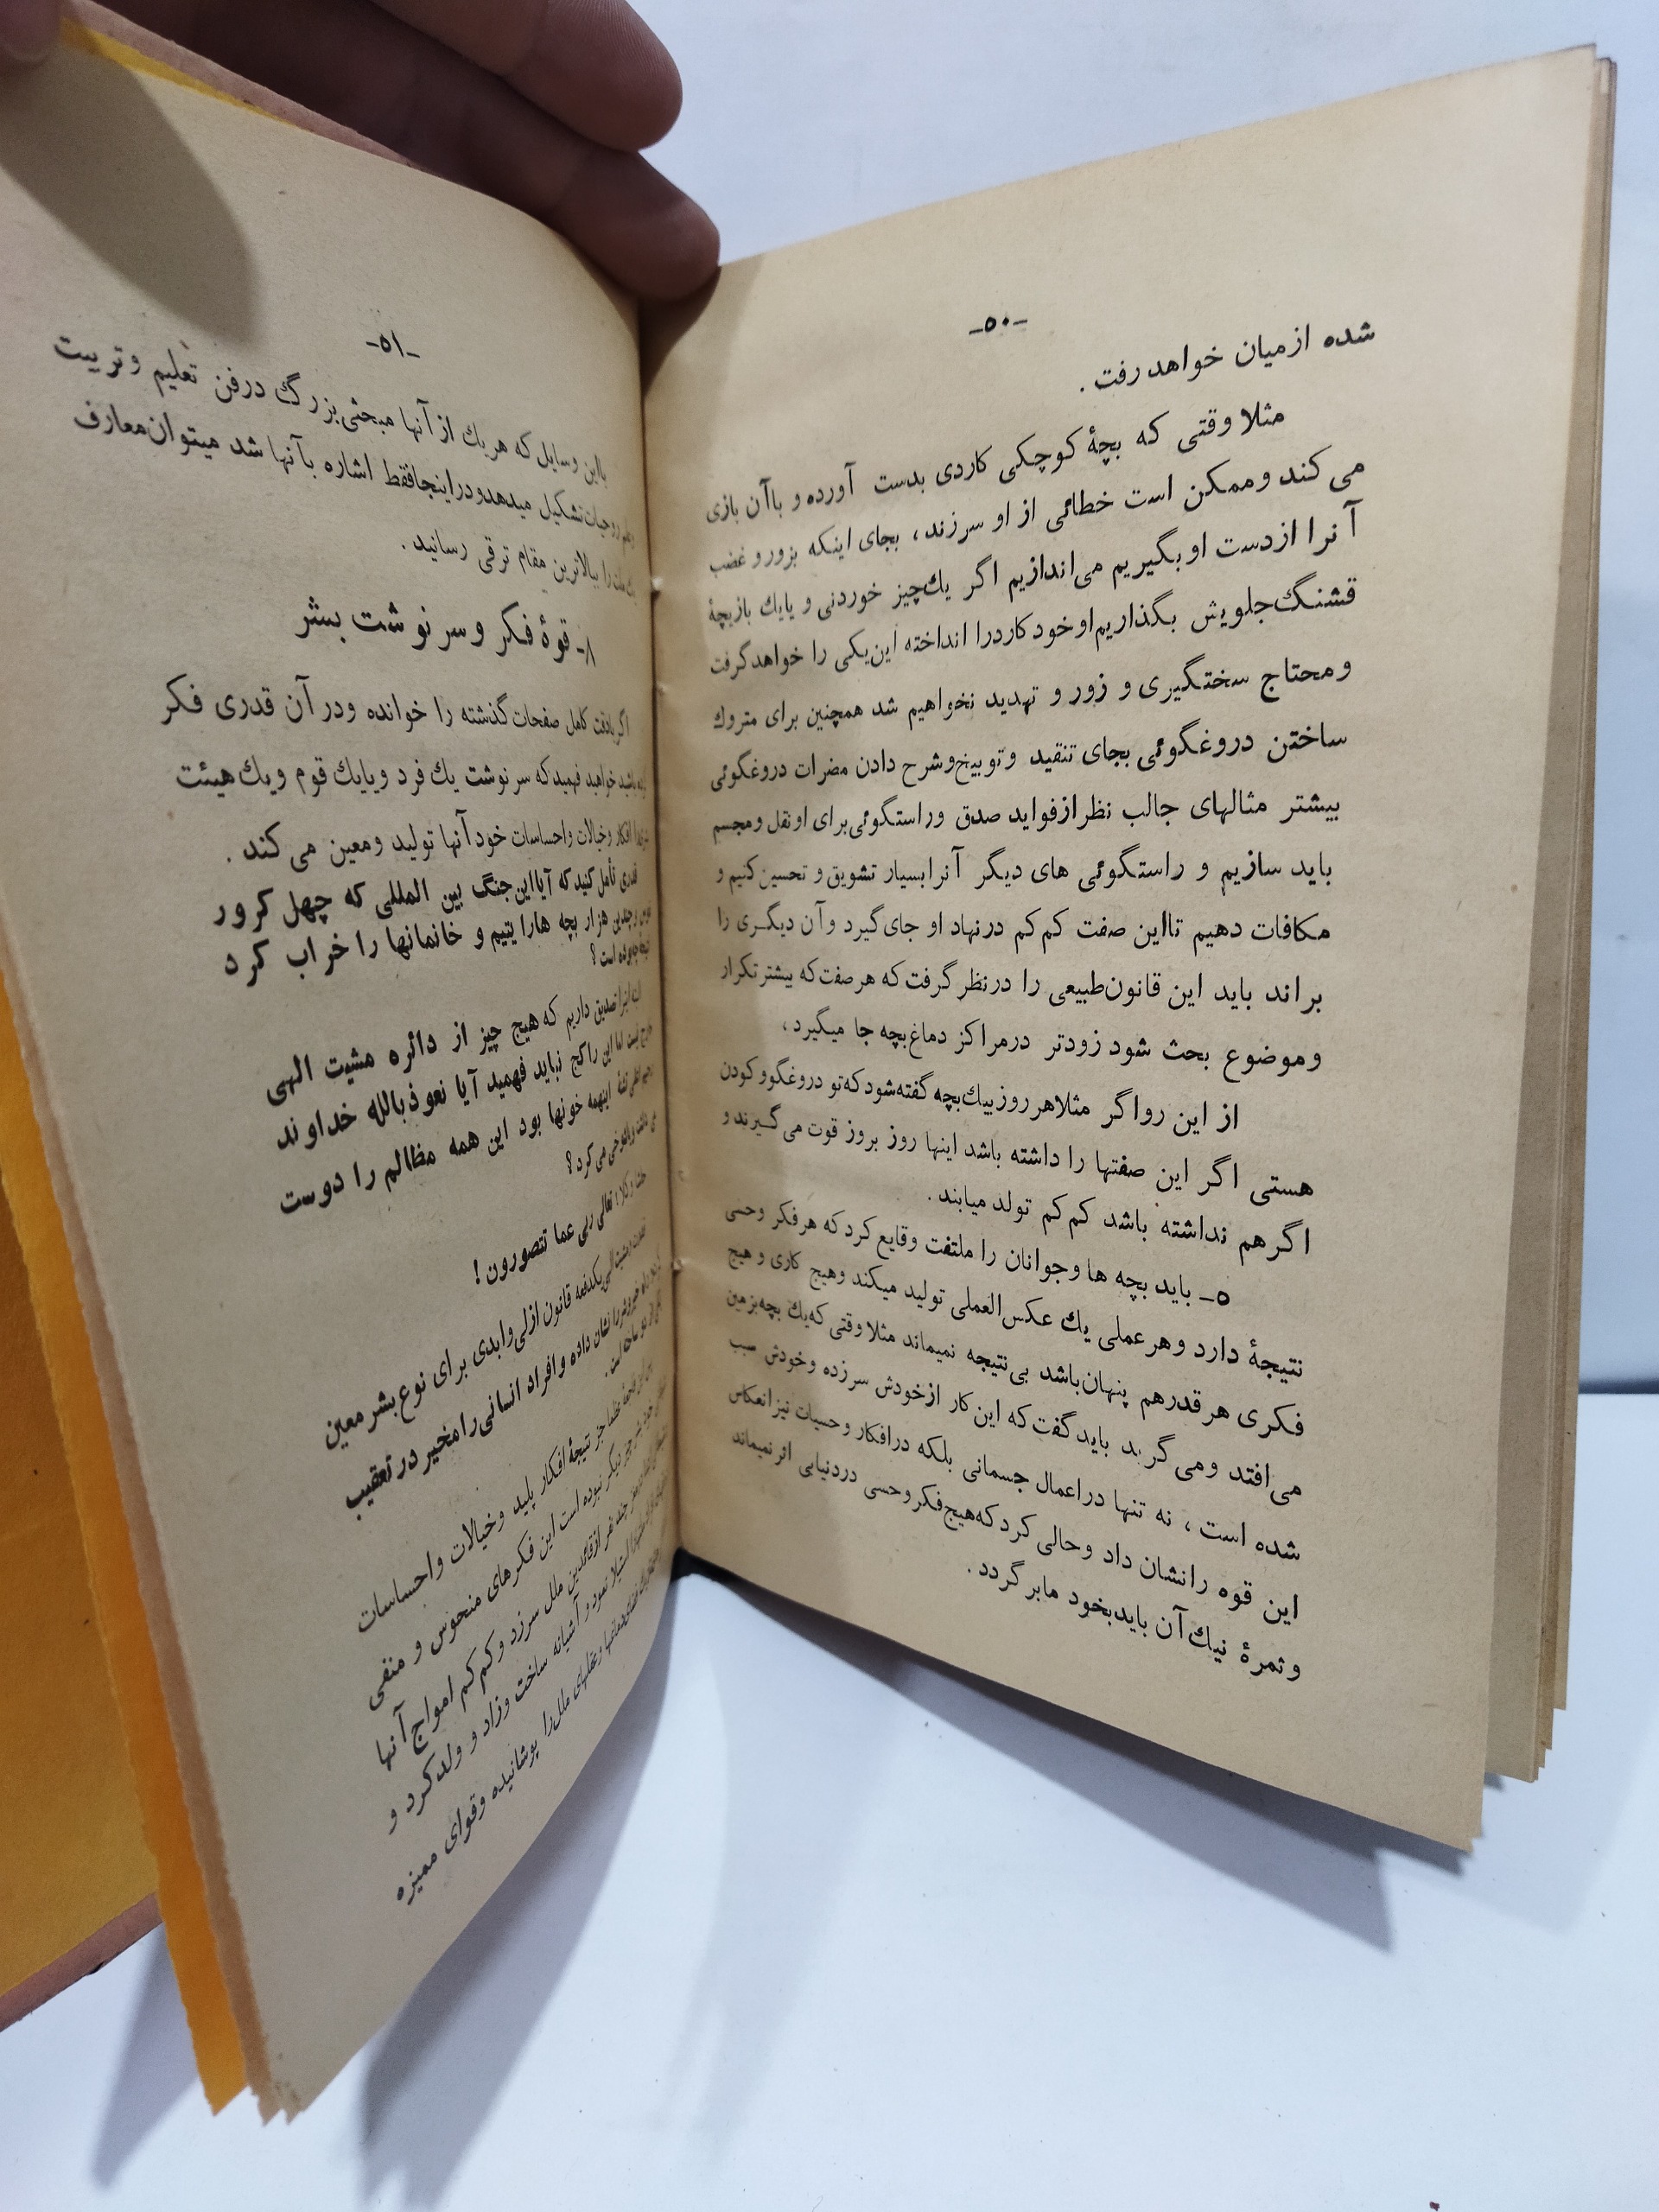 -۵۰-
شده از میان خواهد رفت .
مثلا وقتی که بچهٔ کوچکی کاردی بدست آورده و باآن بازی
می کند وممکن است خطائی از او سرزند، بجای اینکه بزور و غضب
آنرا ازدست او بگیریم می‌اندازیم اگر یك‌چیز خوردنی و یایك بازیچهٔ
قشنگ جلویش بگذاریم او خود کاردرا انداخته این‌یکی را خواهد گرفت
ومحتاج سختگیری و زور و تهدید نخواهیم شد همچنین برای متروك
ساختن دروغگوئی بجای تنقید وتوبیخ‌وشرح دادن مضرات دروغگوئی
بیشتر مثالهای جالب نظر ازفواید صدق وراستگوئی برای او نقل ومجسم
باید سازیم و راستگوئی های دیگر آنرا بسیار تشویق و تحسین کنیم و
مکافات دهیم تااین صفت کم‌کم درنهاد او جای گیرد وآن دیگری را
براند باید این قانون‌طبیعی را درنظر گرفت‌که هر صفت‌که بیشتر تکرار
وموضوع بحث شود زودتر درمراکز دماغ‌بچه جا میگیرد ،
از این رواگر مثلاهر روز بیك‌بچه گفته‌شود که‌تو دروغگوو کودن
هستی اگر این صفتها را داشته باشد اینها روز بروز قوت می گیرند و
اگرهم نداشته باشد کم‌کم تولد میابند .
۵ـ باید بچه ها وجوانان را ملتفت وقایع کرد که هرفکر وحسی
نتیجهٔ دارد وهرعملی یك عکس‌العملی تولید میکند وهیچ کاری و هیچ
فکری هرقدرهم پنهان‌باشد بی‌نتیجه نمیماند مثلا وقتی که‌یك بچه‌بزمین
می‌افتد ومی گرید باید گفت‌که این‌کار ازخودش سرزده وخودش سبب
شده است ، نه تنها دراعمال جسمانی بلکه درافکار وحسیات نیز انعکاس
این قوه رانشان داد وحالی کرد که‌هیچ‌فکر وحسی دردنیابی اثر نمیماند
وثمرهٔ نیك‌آن بایدبخود مابرگردد .
-۵۱-
بااین وسایل که هریك از آنها مبحثی‌بزرگ درفن تعلیم وتربیت
روحیات‌تشکیل میدهدودراینجافقط اشاره بآنها شد میتوان‌معارف
را ببالاترین مقام ترقی رسانید .
۸ـ قوهٔ فکر و سر نوشت بشر
اگر بادقت کامل صفحات گذشته را خوانده ودرآن قدری فکر
باشید خواهید فهمید که سرنوشت یك فرد ویایك قوم ویك‌هیئت
افکار وخیالات واحساسات خودآنها تولید ومعین می کند .
قدری تأمل کنید که آیااین‌جنگ بین المللی که چهل کرور
هزار بچه هارا یتیم و خانمانها را خراب کرد
بوده است؟
تصدیق داریم که هیچ چیز از دائره مشیت الهی
نیست اما این راکج نباید فهمید آیا نعوذبالله خداوند
اینهمه خونها بود این همه مظالم را دوست
می کرد؟
تعالی ربی عما تتصورون!
قانون ازلی وابدی برای نوع بشر معین
نشان داده وافراد انسانی را مخیر در تعقیب
است .
جز نتیجهٔ افکار پلید وخیالات واحساسات
دیگر نبوده است این فکرهای منحوس و منفی
چند نفر از قائدین ملل سرزد وکم‌کم امواج آنها
استیلا نمود و آشیانه ساخت وزاد و ولد کرد و
وعقلهای ملل‌را پوشانیده وقوای ممیزه